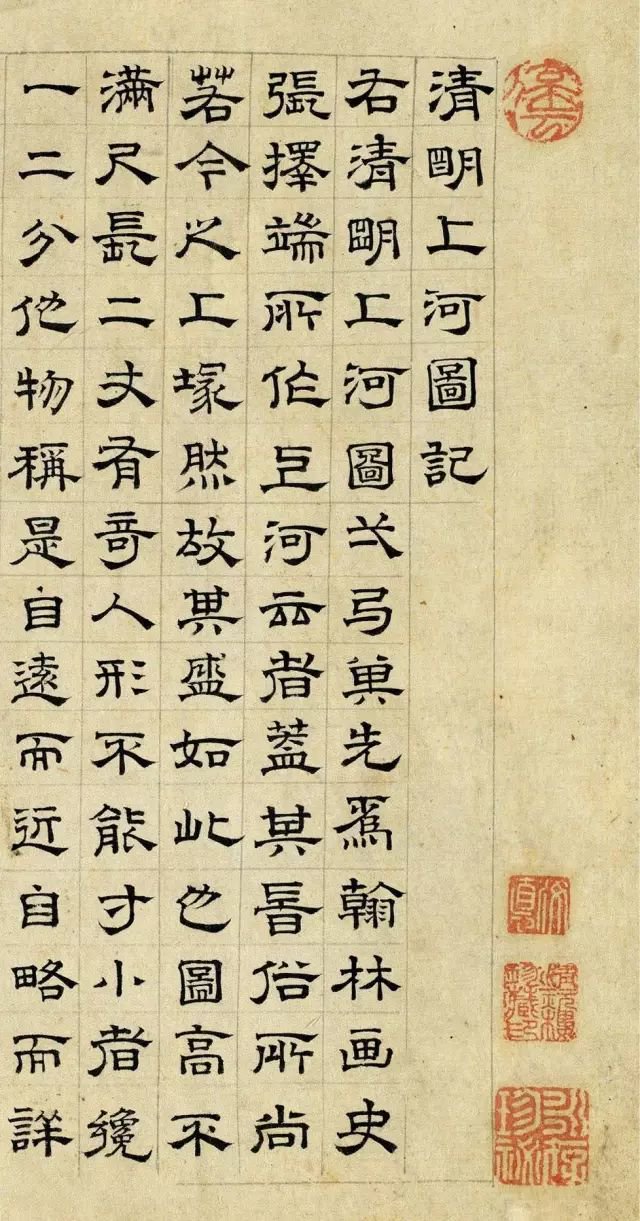 清明上河圖記
右清明上河圖弌弓先爲翰林画史
張擇端所作河云者蓋其俗所尚
若今之上塚然故其盛如此也圖高不
滿尺長二丈有奇人形不能寸小者纔
一二分他物稱是自遠而近自略而詳